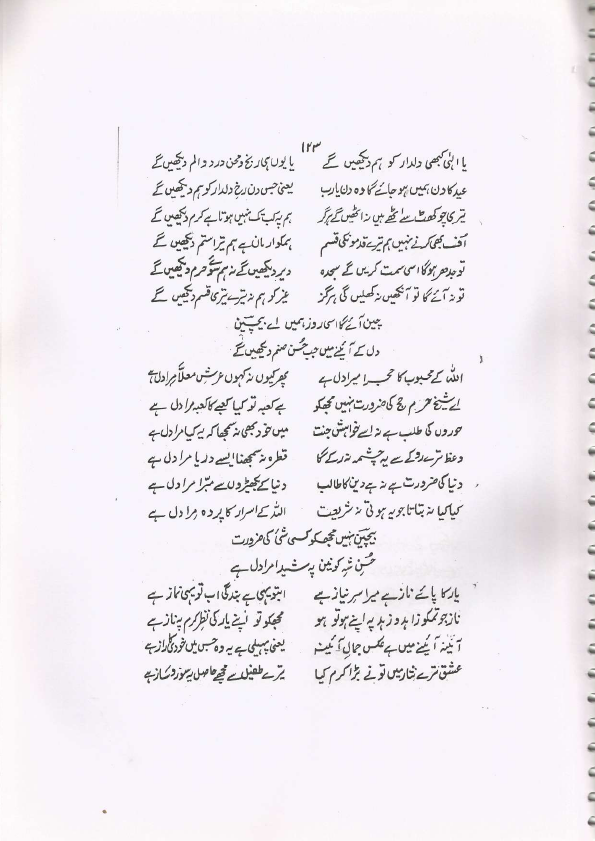 ۱۲۳
یا الٰہی کبھی دلدار کو ہم دیکھیں گے یا یوں ہی رنج و محن درد و الم دیکھیں گے
عید کا دن ہمیں ہو جائے گا وہ دن یارب یعنی جس دن رخِ دلدار کو ہم دیکھیں گے
تیری چوکھٹ سے اٹھے ہیں نہ اٹھیں گے ہرگز ہم پہ کب تک نہیں ہوتا ہے کرم دیکھیں گے
اُف بھی کرنے نہیں ہم تیرے قدموںکی قسم ہمکو ارمان ہے ہم تیرا ستم دیکھیں گے
تو جدھر ہوگا اسی سمت کریں گے سجدہ دیر دیکھیں گے نہ ہم سوئے حرم دیکھیں گے
تو نہ آئے گا تو آنکھیں نہ کھلیں گی ہرگز غیر کو ہم نہ ترے تیری قسم دیکھیں گے
چین آئے گا اسی روز ہمیں اے بیچینؔ
دل کے آئینے میں جب حُسن صنم دیکھیں گے
اللہ کے محبوب کا حجرا میرا دل ہے پھر کیوں نہ کہوں عرش معلّا مرا دل ہے
اے شیخ حرم حج کی ضرورت نہیں مجھکو ہے کعبہ تو کیا کعبے کا کعبہ مرا دل ہے
حوروں کی طلب ہے نہ اے خواہشِ جنت میں خود بھی نہ سمجھا کہ یہ کیا مرا دل ہے
وعظ ترے روکے سے یہ چشمہ نہ رکے گا قطرہ نہ سمجھنا ایسے دریا مرا دل ہے
دنیا کی ضرورت ہے نہ ہے دین کا طالب دنیا کے بکھیڑوں سے مبرّا مرا دل ہے
کیا کیا نہ بتاتا جو یہ ہوتی نہ شریعت اللہ کے اسرار کا پردہ مرا دل ہے
بیچینؔ نہیں مجھکو کسی شئ کی ضرورت
حُسنِ شہِ کونین پہ شیدا مرا دل ہے
یار کا پائے ناز ہے میرا سر نیاز ہے ابتو یہی ہے بندگی اب تو یہی نماز ہے
ناز جو تمکو زاہدو زہد پہ اپنے ہو تو ہو مجھکو تو اپنے یار کی نظرِ کرم پہ ناز ہے
آئینہ آئینے میں ہے عکسِ جمالِ آئینہ یعنی پہیلی ہے یہ وہ جس میں خودی کا راز ہے
عشق ترے نثار میں تو نے بڑا کرم کیا تیرے طفیل سے مجھے حاصل یہ سوز و ساز ہے